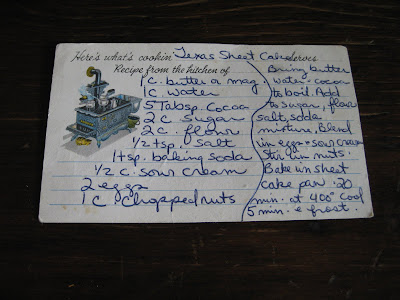 Here's what's cookin' Texas Sheet Cake Serves
Recipe from the kitchen of
1 c. butter or mag.
1 c. water
5 Tabsp. cocoa
2 c sugar
2 c. flour
1/2 tsp. salt
1 tsp. baking soda
1/2 c. sour cream
2 eggs
1 c. chopped nuts
Bring butter
water + cocoa
to boil. Add
to sugar, flour
salt, soda
mixture. Blend
in eggs + sour cream
Stir in nuts.
Bake in sheet
cake pan. 20
min. at 400° Cool
5 min. & frost.